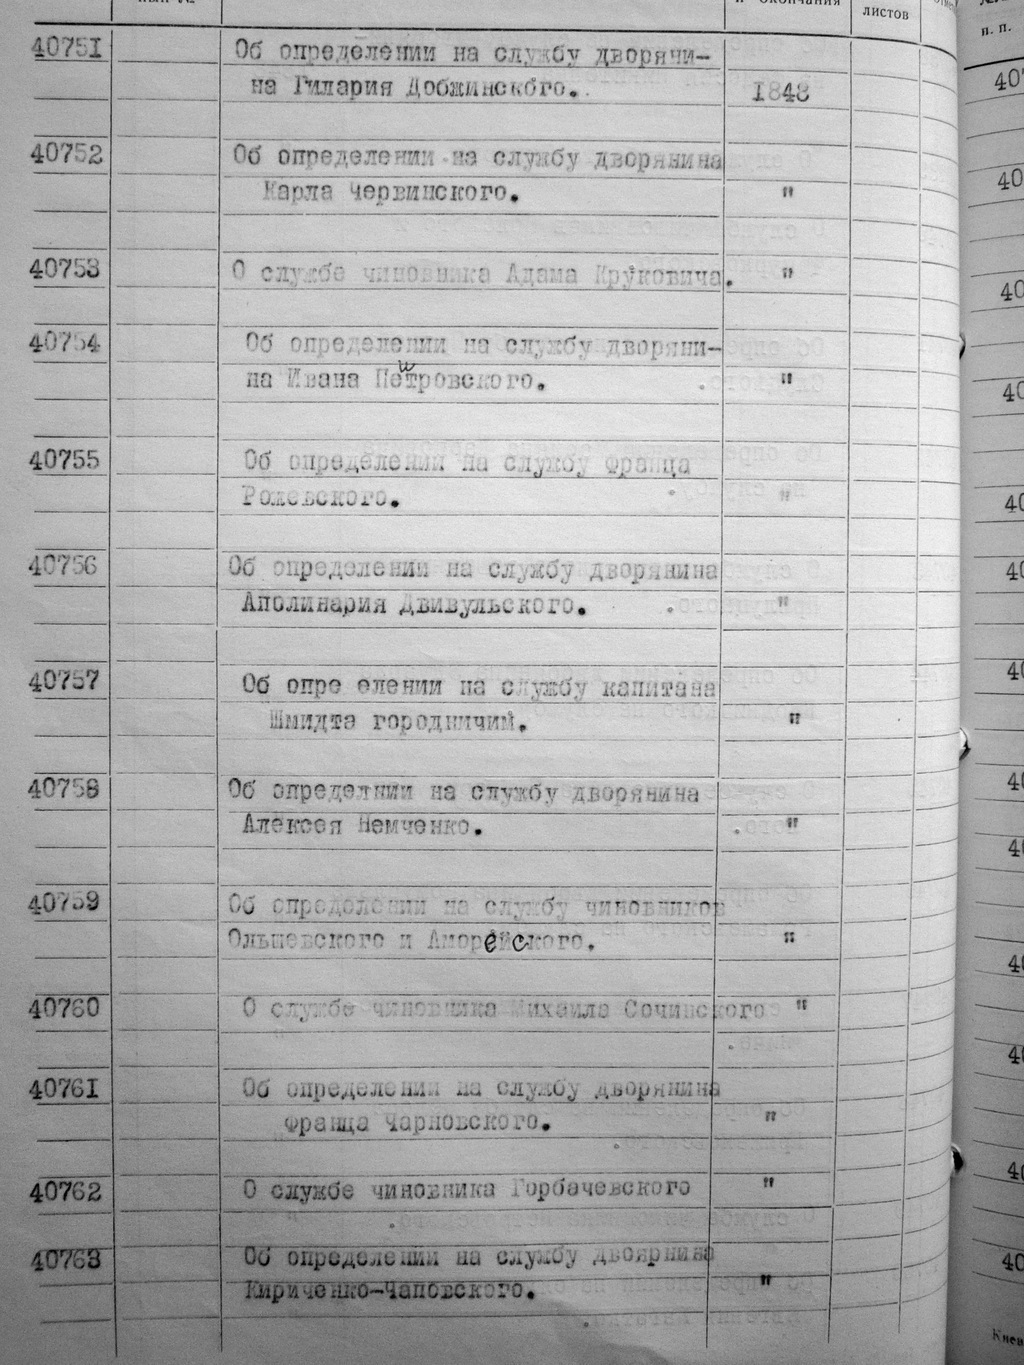 и окончания
листов
40751 Об определении на службу дворячи-
на Гилария Добжинского. 1848
40752 Об определении на службу дворянина
Карла Червинского. "
40753 О службе чиновника Адама Круковича. "
40754 Об определении на службу дворяни-
на Ивана Петровского. "
40755 Об определении на службу Франца
Рожевского. "
40756 Об определении на службу дворянина
Аполинария Двивульского. "
40757 Об опре елении на службу капитана
Шмидта городничим. "
40758 Об определнии на службу дворянина
Алексея Немченко. "
40759 Об определении на службу чиновников
Ольшевского и Аморейского. "
40760 О службе чиновника Михаила Сочинского "
40761 Об определении на службу дворянина
Франца Чарновского. "
40762 О службе чиновника Горбачевского "
40763 Об определении на службу двоярнина
Кириченко-Чаповского. "
н. п.
Киев